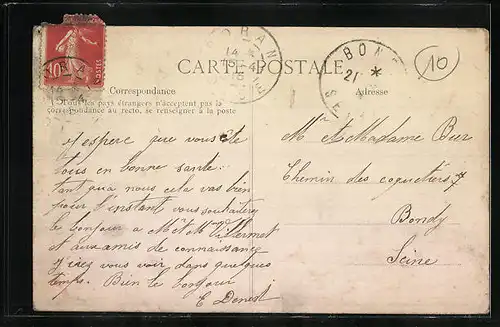 ORAN
14 -4
BOND
21 *
SEI
10
10c
POSTES
CARTE POSTALE
Correspondance
Tous les pays étrangers n'acceptent pas la
correspondance au recto, se renseigner à la poste
Adresse
J'espere que vous ete
tous en bonne sante
tant qua nous cela vas bien
pour l'instant vous souhaiterez
le bonjour a M et Me Villermet
et aux amis de connaissance
J'irez vous voir dans quelques
temps. Bien le bonjour
E Denest
M et Madame Bur
Chemin des coquetiers 7
Bondy
Seine